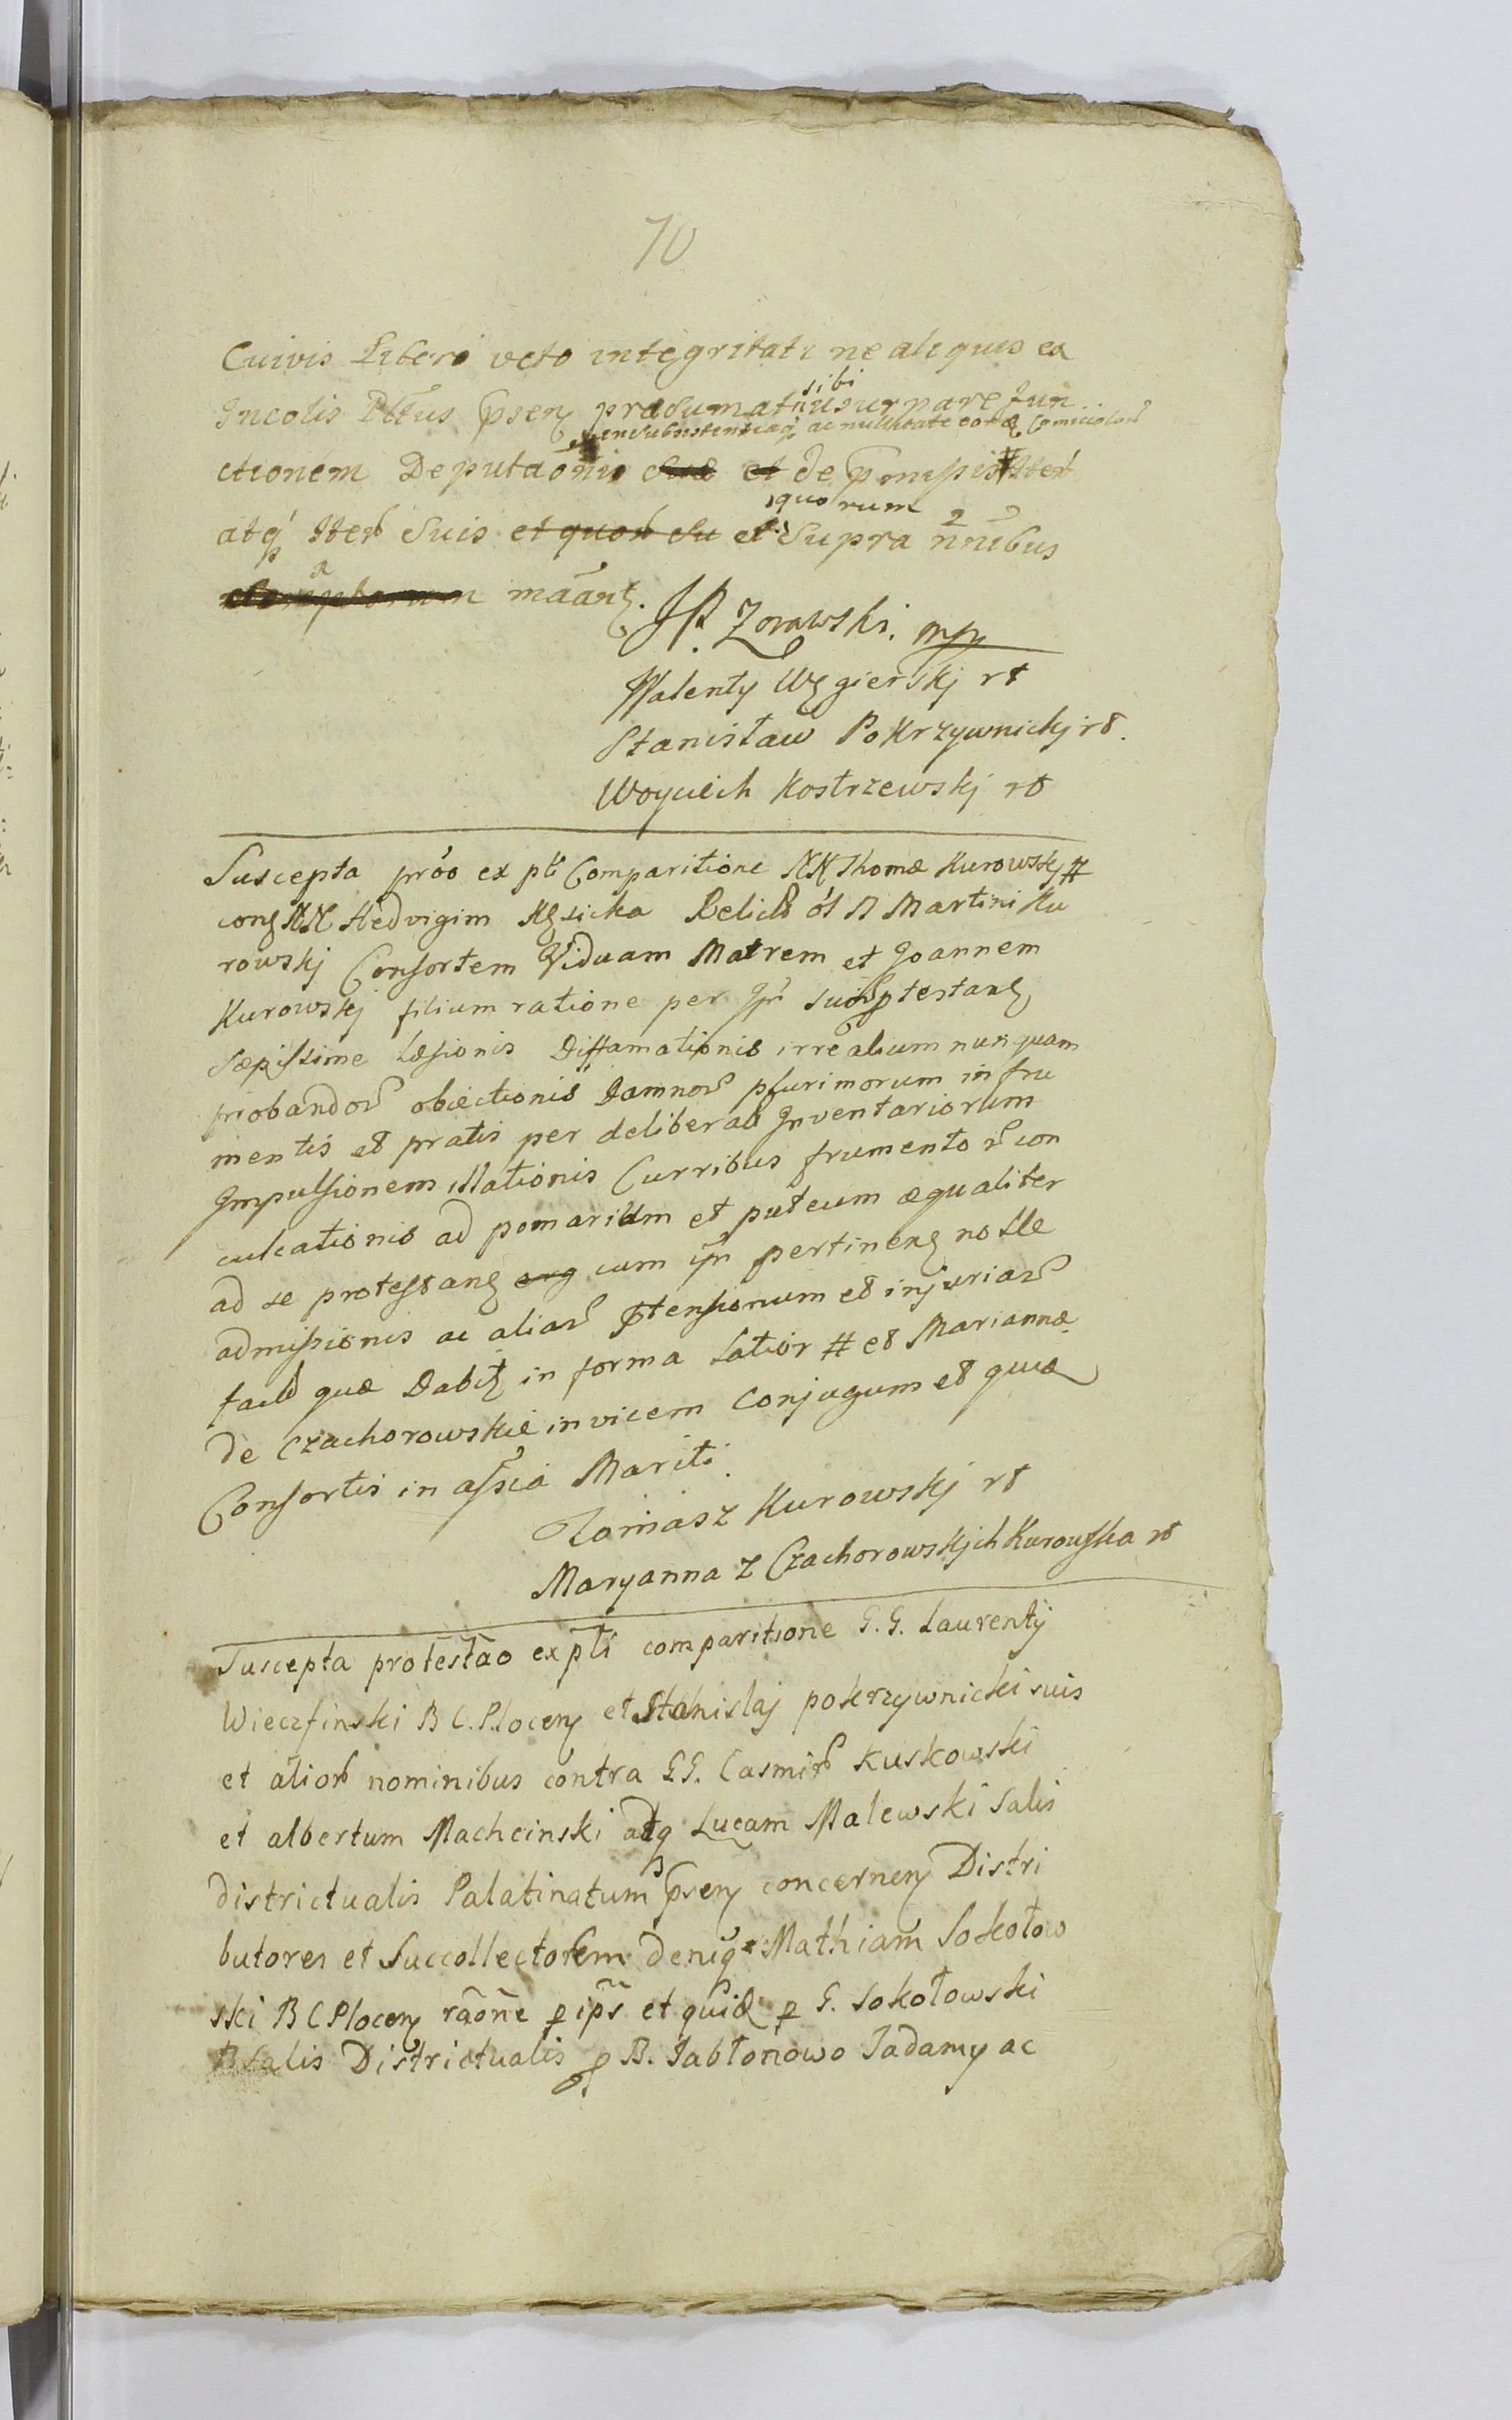 70
Cuivis Liberi veto integritati ne aliquis ex
Incolis Pttus psen praesumat sibi usurpare fun
insubsistentiaq ac nullitate eorq Comiciolor
ctionem Deputaonis suae et de pmispis Iter
atq Iter suis et quor su et quorum supra nnibus
maan.
JP. Zorawski. mpp
Walenty Węgierskj rt
Stanisław Pokrzywnickj rt.
Woyciech Kostrzewskj rt
Suscepta pro ex pti Comparitione NN Thomae Kurowskj #
con NN Hedvigim Kęsicka Relict ol N Martini Ku
rowskj Consortem Viduam Matrem et Joannem
Kurowskj filium ratione per Ipr suor ptestan
saepissime Laesionis Diffamationis irrealium nunquam
probandor obiectionis Damnor plurimorum in fru
mentis et pratis per deliberat Inventariorum
Impulsionem illationis Curribus frumentor con
culcationis ad pomarium et puteum aequaliter
ad se protestan cum ipn pertinen nolle
admissionis ac aliar ptensionum et injuriar
fact quae Dabit in forma Latior # et Mariannae
de Czachorowskie invicem Conjugum et quae
Consortis in assia Mariti.
Tomasz Kurowskj rt
Maryanna z Czachorowskjch Kurowska rt
Suscepta protestao ex pti comparitione G.G. Laurentÿ
Wieczfinski B C. Plocen et Stanislaj pokrzywnicki suis
et alior nominibus contra GG. Casmir Kuskowski
et albertum Machcinski adq Lucam Malewski salis
districtualis Palatinatum psen concernen Distri
butores et Succollectorem deniq Mathiam Sokołow
ski B C Plocen raone p ips et quid p G. Sokołowski
Salis Districtualis p B. Jabłonowo Jadamy ac